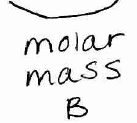 molar
mass
B